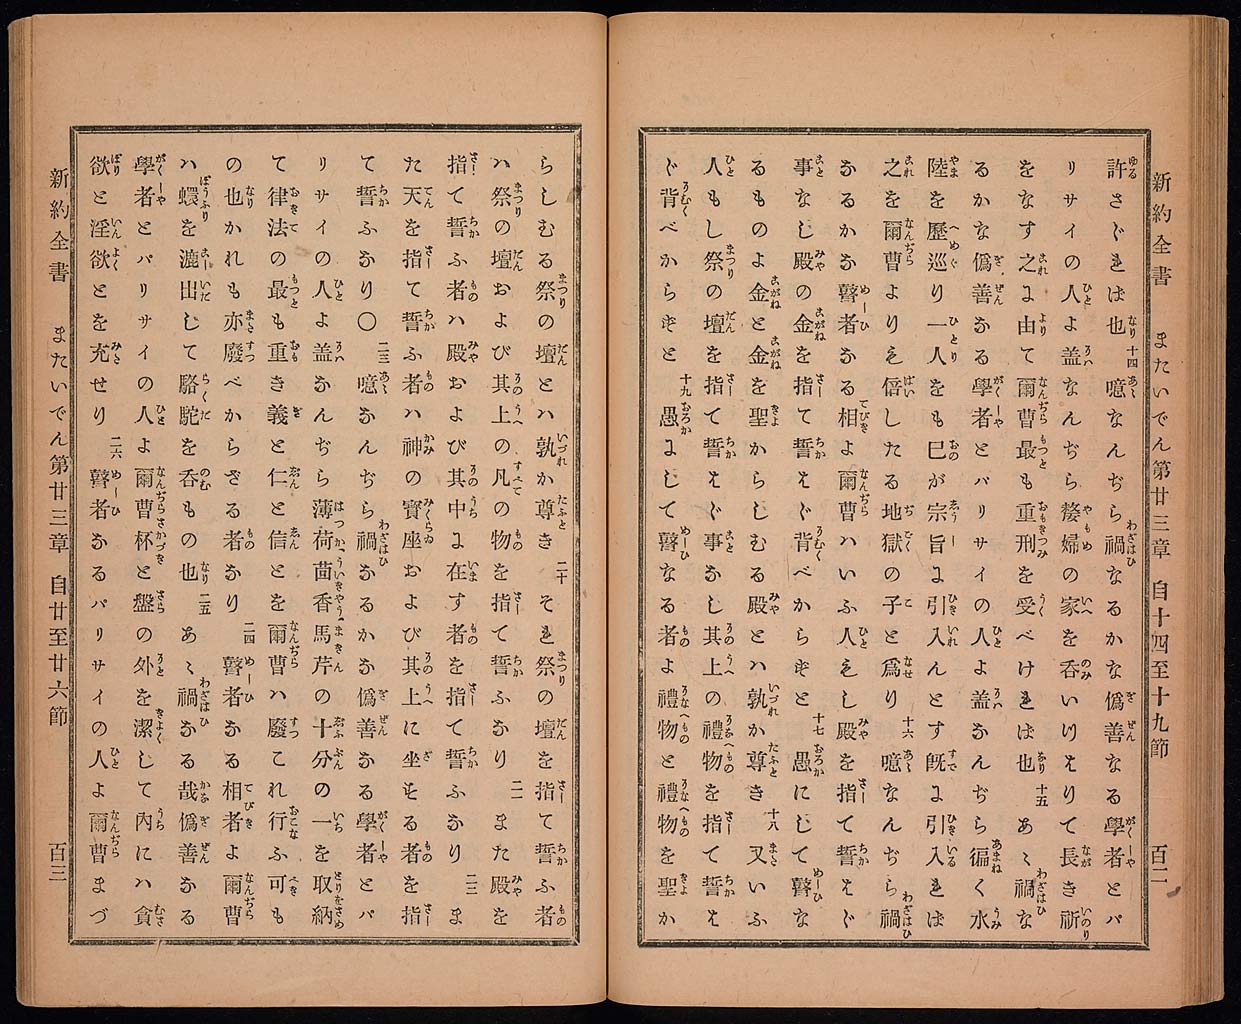 新約全書　またいでん第廿三章　自十四至十九節　百二
許さゞれば也 十四 噫なんぢら禍なるかな僞善なる學者とパ
リサイの人よ蓋なんぢら嫠婦の家を呑いつはりて長き祈
をなす之に由て爾曹最も重刑を受べければ也 十五 あゝ禍な
るかな僞善なる學者とパリサイの人よ蓋なんぢら徧く水
陸を歷巡り一人をも己が宗旨に引入んとす旣に引入れば
之を爾曹よりも倍したる地獄の子と爲り 十六 噫なんぢら禍
なるかな瞽者なる相よ爾曹ハいふ人もし殿を指て誓はゞ
事なし殿の金を指て誓はゞ背べからずと 十七 愚にして瞽な
るものよ金と金を聖からしむる殿とハ孰か尊き 十八 又いふ
人もし祭の壇を指て誓はゞ事なし其上の禮物を指て誓は
ゞ背べからずと 十九 愚にして瞽なる者よ禮物と禮物を聖か
らしむる祭の壇とハ孰か尊き 二十 それ祭の壇を指て誓ふ者
ハ祭の壇および其上の凡の物を指て誓ふなり 二一 また殿を
指て誓ふ者ハ殿および其中に在す者を指て誓ふなり 二二 ま
た天を指て誓ふ者ハ神の寶座および其上に坐する者を指
て誓ふなり〇 二三 噫なんぢら禍なるかな僞善なる學者とパ
リサイの人よ蓋なんぢら薄荷茴香馬芹の十分の一を取納
て律法の最も重き義と仁と信とを爾曹ハ廢これ行ふ可も
の也かれも亦廢べからざる者なり 二四 瞽者なる相者よ爾曹
ハ蠉を漉出して駱駝を呑もの也 二五 あゝ禍なる哉僞善なる
學者とパリサイの人よ爾曹杯と盤の外を潔して內にハ貪
欲と淫欲とを充せり 二六 瞽者なるパリサイの人よ爾曹まづ
新約全書　またいでん第廿三章　自廿至廿六節　百三